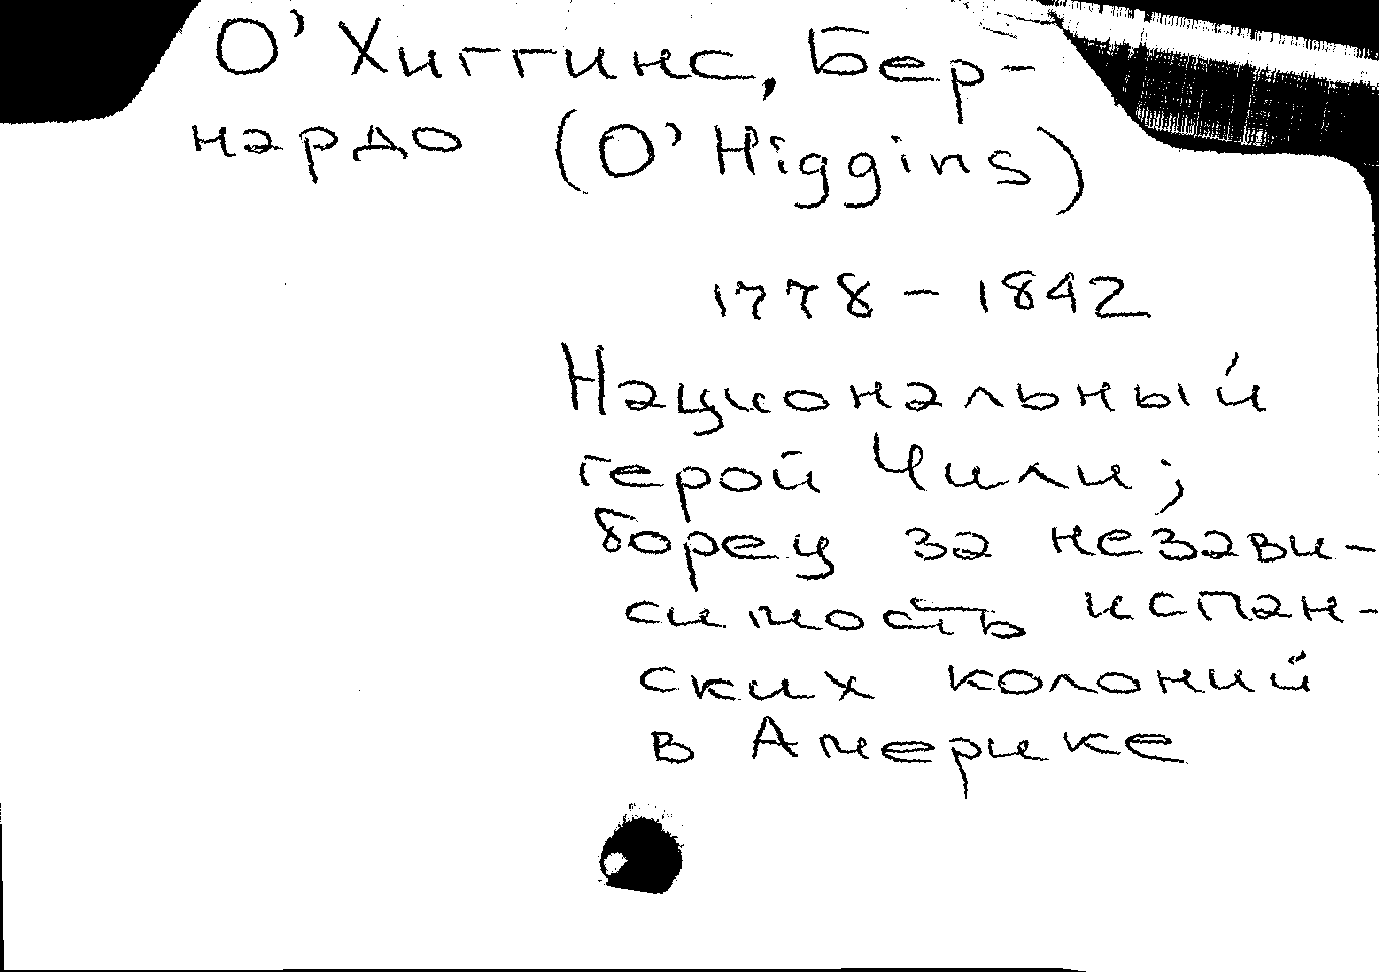 О'Хиггинс, Бер-
нардо (O'Higgins)
1778 - 1842
Национальный
герой Чили;
борец за незави-
симость испан-
ских колоний
в Америке